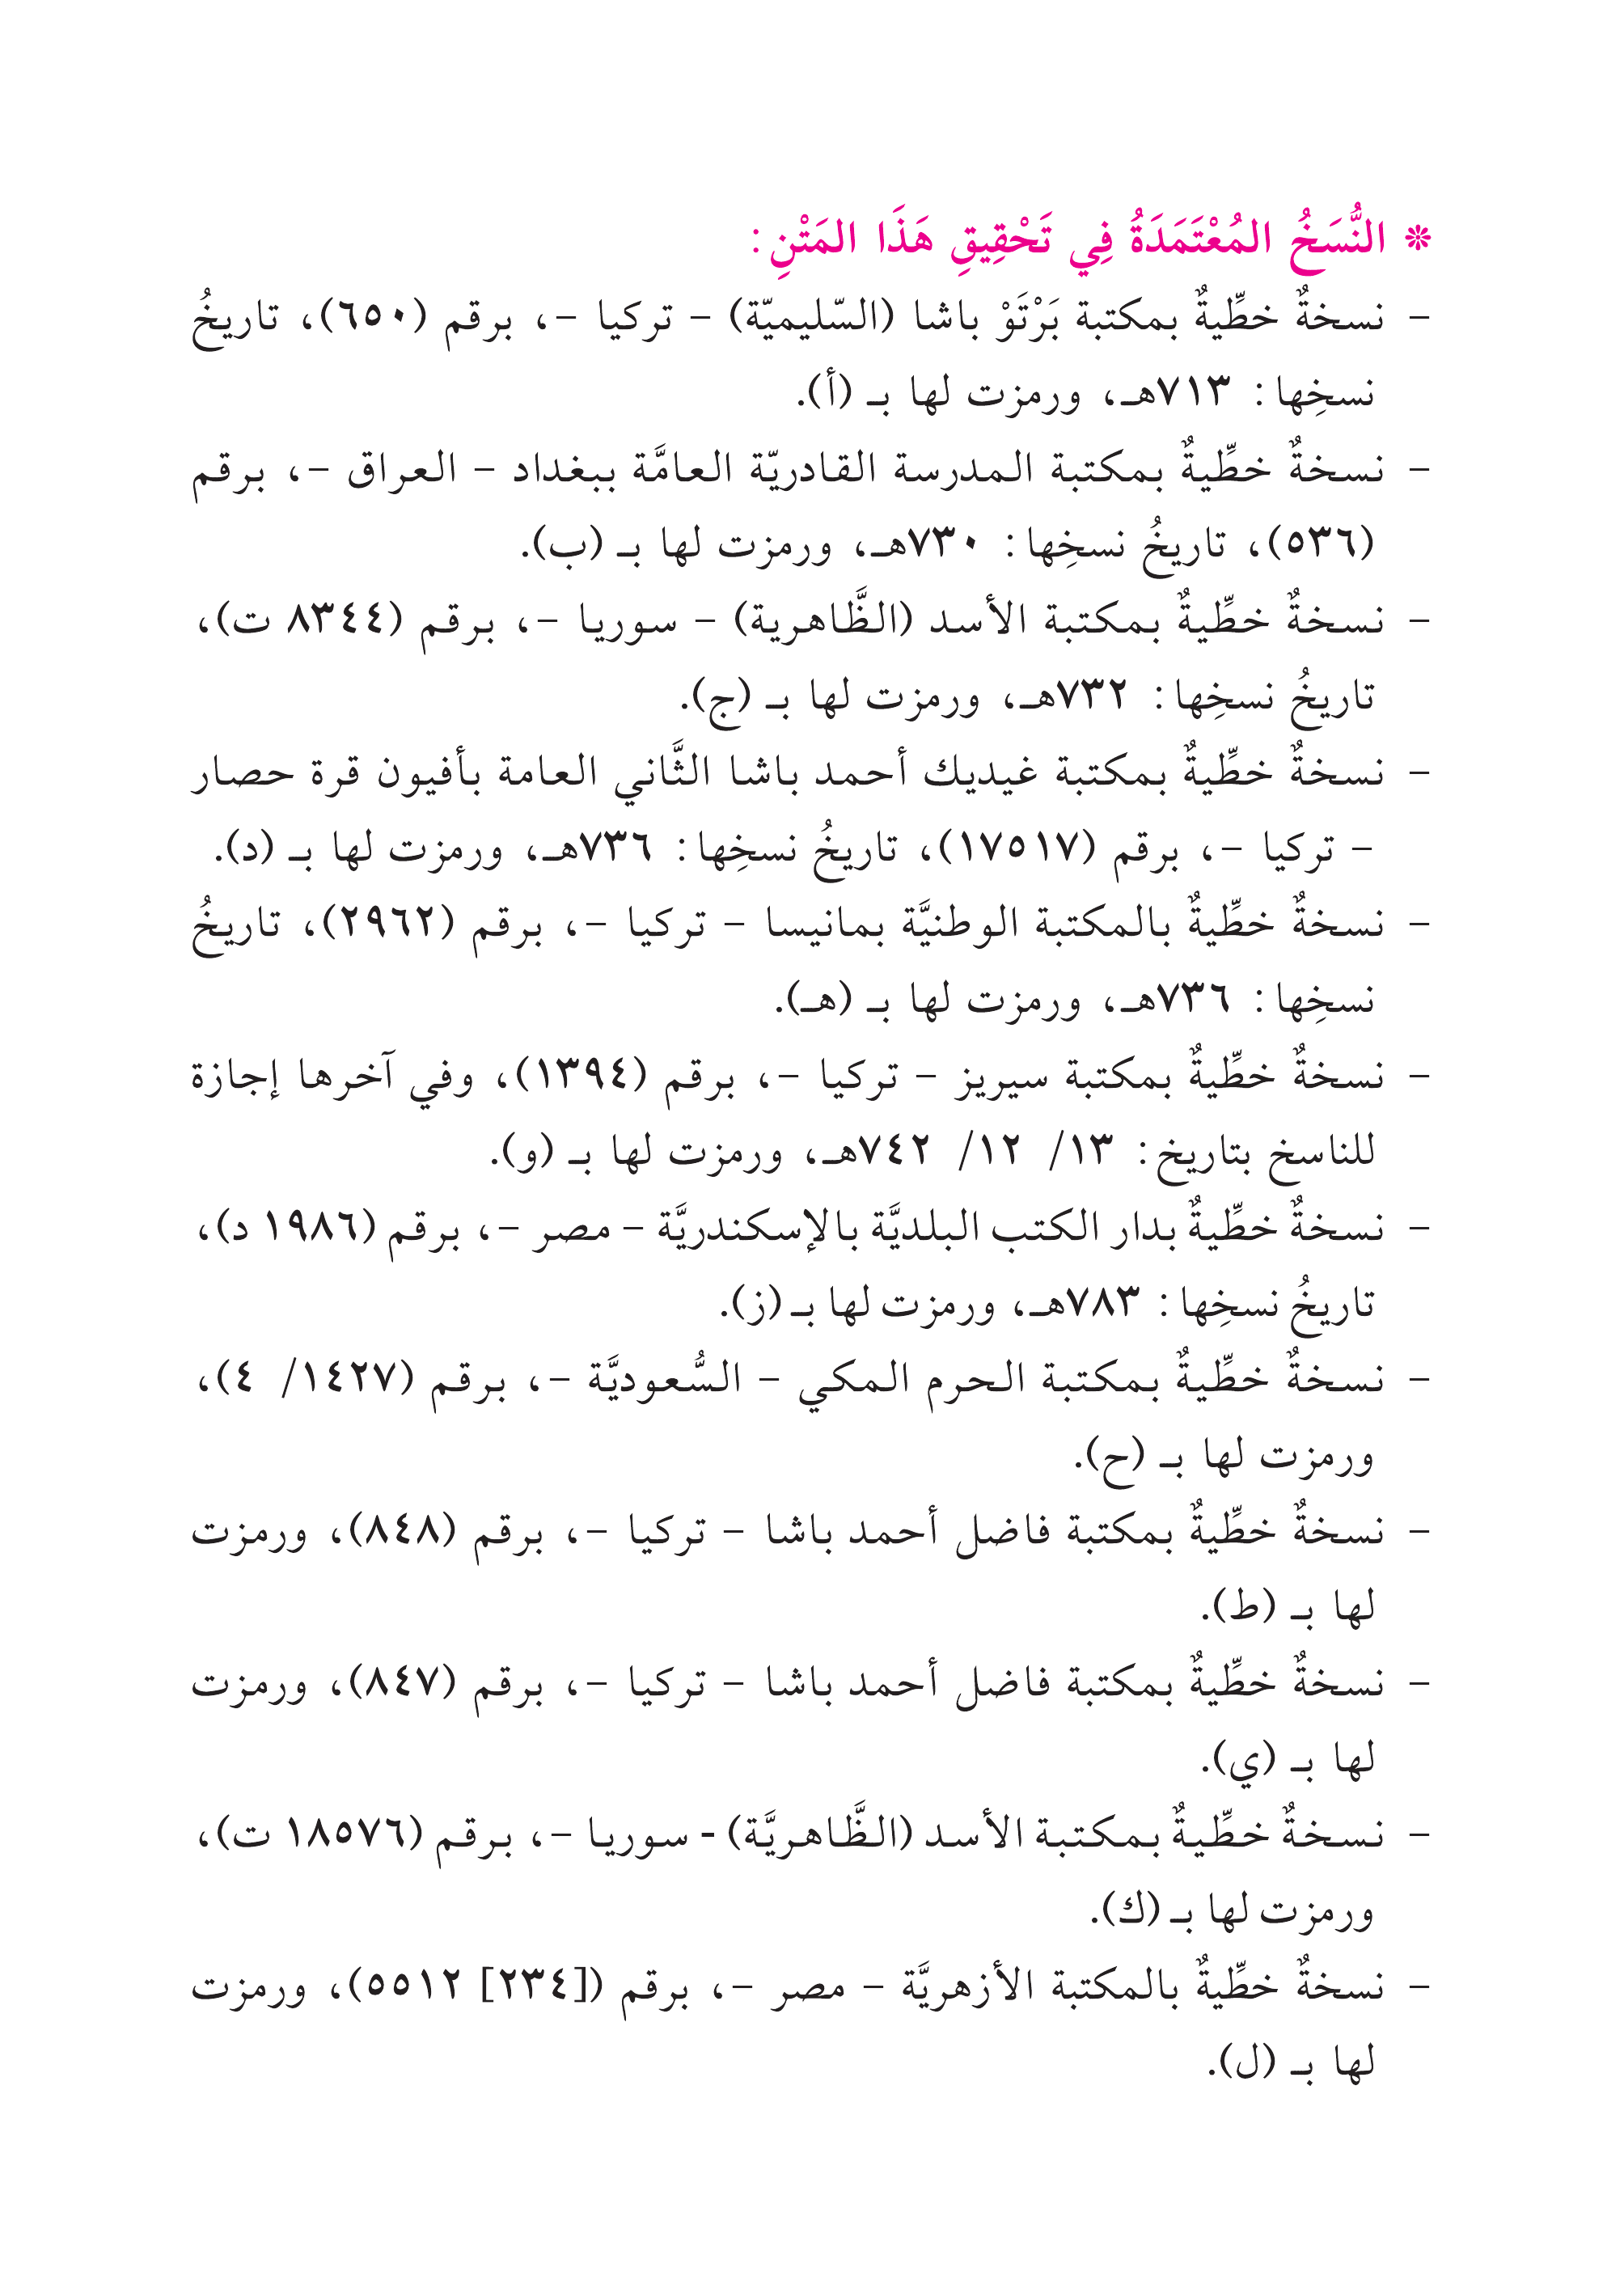 * النُّسَخُ المُعْتَمَدَةُ فِي تَحْقِيقِ هَذَا المَتْنِ:
- نسخةٌ خطِّيةٌ بمكتبة بَرْتَوْ باشا (السّليميّة) - تركيا -، برقم (٦٥٠)، تاريخُ
نسخِها: ٧١٣هـ، ورمزت لها بـ (أ).
- نسخةٌ خطِّيةٌ بمكتبة المدرسة القادريّة العامَّة ببغداد - العراق -، برقم
(٥٣٦)، تاريخُ نسخِها: ٧٣٠هـ، ورمزت لها بـ (ب).
- نسخةٌ خطِّيةٌ بمكتبة الأسد (الظَّاهرية) - سوريا -، برقم (٨٣٤٤ ت)،
تاريخُ نسخِها: ٧٣٢هـ، ورمزت لها بـ (ج).
- نسخةٌ خطِّيةٌ بمكتبة غيديك أحمد باشا الثَّاني العامة بأفيون قرة حصار
- تركيا -، برقم (١٧٥١٧)، تاريخُ نسخِها: ٧٣٦هـ، ورمزت لها بـ (د).
- نسخةٌ خطِّيةٌ بالمكتبة الوطنيَّة بمانيسا - تركيا -، برقم (٢٩٦٢)، تاريخُ
نسخِها: ٧٣٦هـ، ورمزت لها بـ (هـ).
- نسخةٌ خطِّيةٌ بمكتبة سيريز - تركيا -، برقم (١٣٩٤)، وفي آخرها إجازة
للناسخ بتاريخ: ١٣/ ١٢/ ٧٤٢هـ، ورمزت لها بـ (و).
- نسخةٌ خطِّيةٌ بدار الكتب البلديَّة بالإسكندريَّة - مصر -، برقم (١٩٨٦ د)،
تاريخُ نسخِها: ٧٨٣هـ، ورمزت لها بـ (ز).
- نسخةٌ خطِّيةٌ بمكتبة الحرم المكي - السُّعوديَّة -، برقم (١٤٢٧/ ٤)،
ورمزت لها بـ (ح).
- نسخةٌ خطِّيةٌ بمكتبة فاضل أحمد باشا - تركيا -، برقم (٨٤٨)، ورمزت
لها بـ (ط).
- نسخةٌ خطِّيةٌ بمكتبة فاضل أحمد باشا - تركيا -، برقم (٨٤٧)، ورمزت
لها بـ (ي).
- نسخةٌ خطِّيةٌ بمكتبة الأسد (الظَّاهريَّة) - سوريا -، برقم (١٨٥٧٦ ت)،
ورمزت لها بـ (ك).
- نسخةٌ خطِّيةٌ بالمكتبة الأزهريَّة - مصر -، برقم ([٢٣٤] ٥٥١٢)، ورمزت
لها بـ (ل).